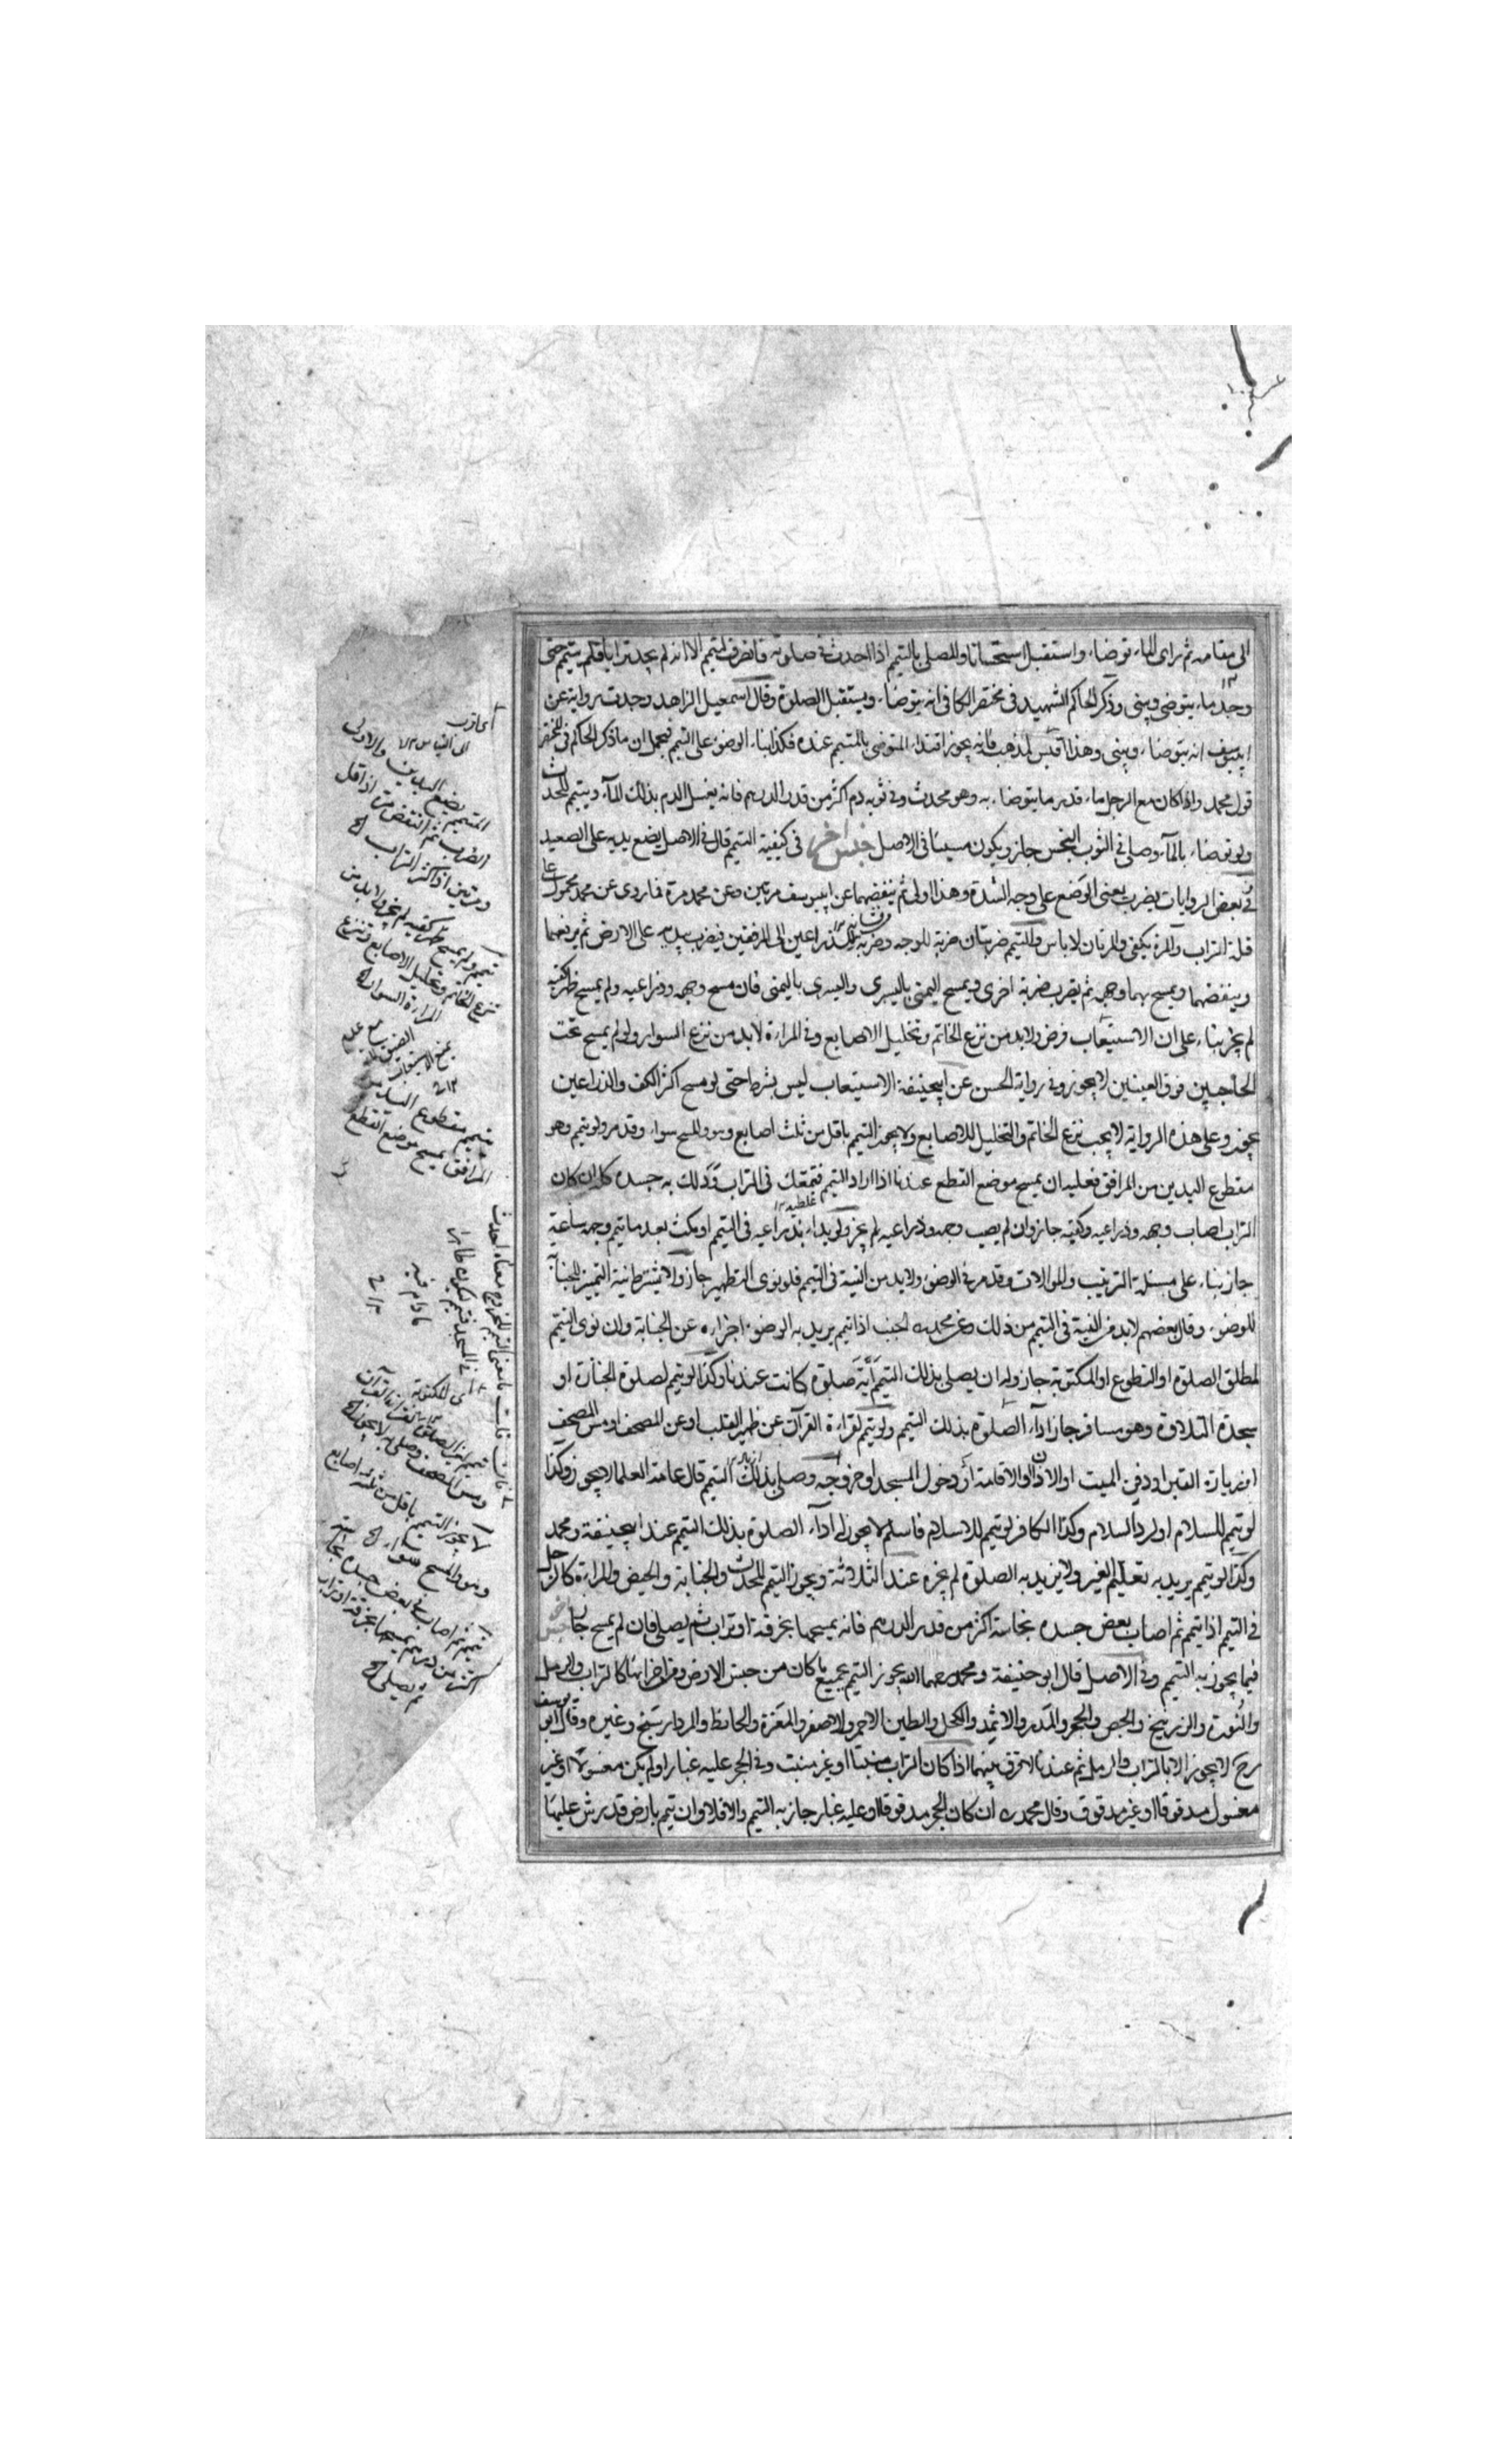 الى مقامه ثم راى الماء توضاء واستقبل استحسانا والمصلى بالتيمم اذا احدث فى صلوته فانصرف ليتيمم الا انه لم يجد ترابا فلم يتيمم حتى
وجد ماء يتوضى ويبنى وذكر الحاكم الشهيد فى مختصر الكافى انه يتوضاء ويستقبل الصلوة وقال اسمعيل الزاهد وجدت رواية عن
ابيوسف انه يتوضاء ويبنى وهذا اقيس لمذهبه فانه يجوز اقتداء المتوضى بالمتيمم عنده فكذا بناء الوضوء على التيمم فيحمل ان ما ذكر الحاكم فى المختصر
قول محمد واذا كان مع الرجل ماء قدر ما يتوضاء به وهو محدث وفى ثوبه دم اكثر من قدر الدرهم فانه يغسل الدم بذلك الماء ويتيمم للحدث
ولو توضاء بالماء وصلى فى الثوب النجس جاز ويكون مسيئا فى الاصل جنس اخر فى كيفية التيمم قال فى الاصل يضع يديه على الصعيد
وفى بعض الروايات يضرب يعنى الوضع على وجه الشدة وهذا اولى ثم ينفضهما عن ابيوسف مرتين وعن محمد مرة فما روى عن محمد محمول على
قلة التراب والمرة يكفى والمرتان لا باس والتيمم ضربتان ضربة للوجه وضربة للذراعين الى المرفقين فيضرب يديه على الارض ثم يرفعهما
وينفضهما ويمسح بهما وجهه ثم يضرب ضربة اخرى ويمسح اليمنى باليسرى واليسرى باليمنى فان مسح وجهه وذراعيه ولم يمسح ظهر كفيه
لم يجز بناء على ان الاستيعاب فرض ولابد من نزع الخاتم وتخليل الاصابع وفى المراءة لابد من نزع السوار ولو لم يمسح تحت
الحاجبين فوق العينين لا يجوز وفى رواية الحسن عن ابيحنيفة الاستيعاب ليس بشرط حتى لو مسح اكثر الكف والذراعين
يجوز وعلى هذه الرواية لا يجب نزع الخاتم والتخليل للاصابع ولا يجوز التيمم باقل من ثلث اصابع وهو والمسح سواء وقد مر ولو تيمم وهو
مقطوع اليدين من المرافق فعليه ان يمسح موضع القطع عندنا اذا اراد التيمم فتمعك فى التراب وذلك به جسده كله ان كان
التراب اصاب وجهه وذراعيه وكفيه جاز وان لم يصب وجهه وذراعيه لم يجز ولو بداء بذراعيه فى التيمم او مكث بعد ما تيمم وجهه ساعة
جاز بناء على مسئلة الترتيب والموالات وقد مر فى الوضوء ولابد من النية فى التيمم فلو نوى التطهير جاز ولا يشترط نية التمييز للجنابة
للوضوء وقال بعضهم لابد من النية فى التيمم من ذلك وعن محمد الجنب اذا تيمم يريد به الوضوء اجزاءه عن الجنابة وان نوى التيمم
لمطلق الصلوة او التطوع او المكتوبة جاز وله ان يصلى بذلك التيمم اية صلوة كانت عندنا وكذا لو تيمم لصلوة الجنازة او
سجدة التلاوة وهو مسافر جاز اداء الصلوة بذلك التيمم ولو تيمم لقراءة القرآن عن ظهر القلب او عن المصحف او مس المصحف
او زيارة القبر او دفن الميت او الاذان او الاقامة او دخول المسجد او خروجه وصلى بذلك التيمم قال عامة العلما لا يجوز وكذا
لو تيمم للسلام او لرد السلام وكذا الكافر لو تيمم للاسلام فاسلم لا يجوز له اداء الصلوة بذلك التيمم عند ابيحنيفة ومحمد
وكذا لو تيمم يريد به تعليم الغير ولا يريد به الصلوة لم يجزه عند الثلاثة ويجوز التيمم للحدث والجنابة والحيض والمراءة كالرجل
فى التيمم اذا تيمم ثم اصاب بعض جسده نجاسة اكثر من قدر الدرهم فانه يمسحها بخرقة او تراب ثم يصلى فان لم يمسح جاز
فيما يجوز به التيمم وفى الاصل قال ابو حنيفة ومحمد رحمهما الله يجوز التيمم بجميع ما كان من جنس الارض ومن اجزائها كالتراب والرمل
والنورة والزرنيخ والجص والحجر والمدر والاثمد والكحل والطين الاحمر والاصفر والمغرة والحائط والمردار سنج وغيره وقال ابو يوسف
رح لا يجوز الا بالتراب والرمل ثم عندنا لا فرق بينهما اذا كان التراب منبتا او غير منبت وفى الحجر عليه غبار او لم يكن مغسولا او غير
مغسول مدقوقا او غير مدقوق وقال محمد ان كان الحجر مدقوقا او عليه غبار جاز به التيمم والا فلا وان تيمم بارض قد رش عليها
المتيمم يضع اليدين
تيمم ولم يمسح ظهر كفيه لم يجز ولابد من
نزع الخاتم وتخليل الاصابع ونزع
المراءة السوار
متيمم مقطوع اليدين من
المرافق يمسح موضع القطع
لا يجوز التيمم باقل من ثلثة اصابع
وهو والمسح سواء
تيمم ثم اصاب بعض جسده نجاسة
اكثر من درهم يمسحها بخرقة او تراب
ثم يصلى